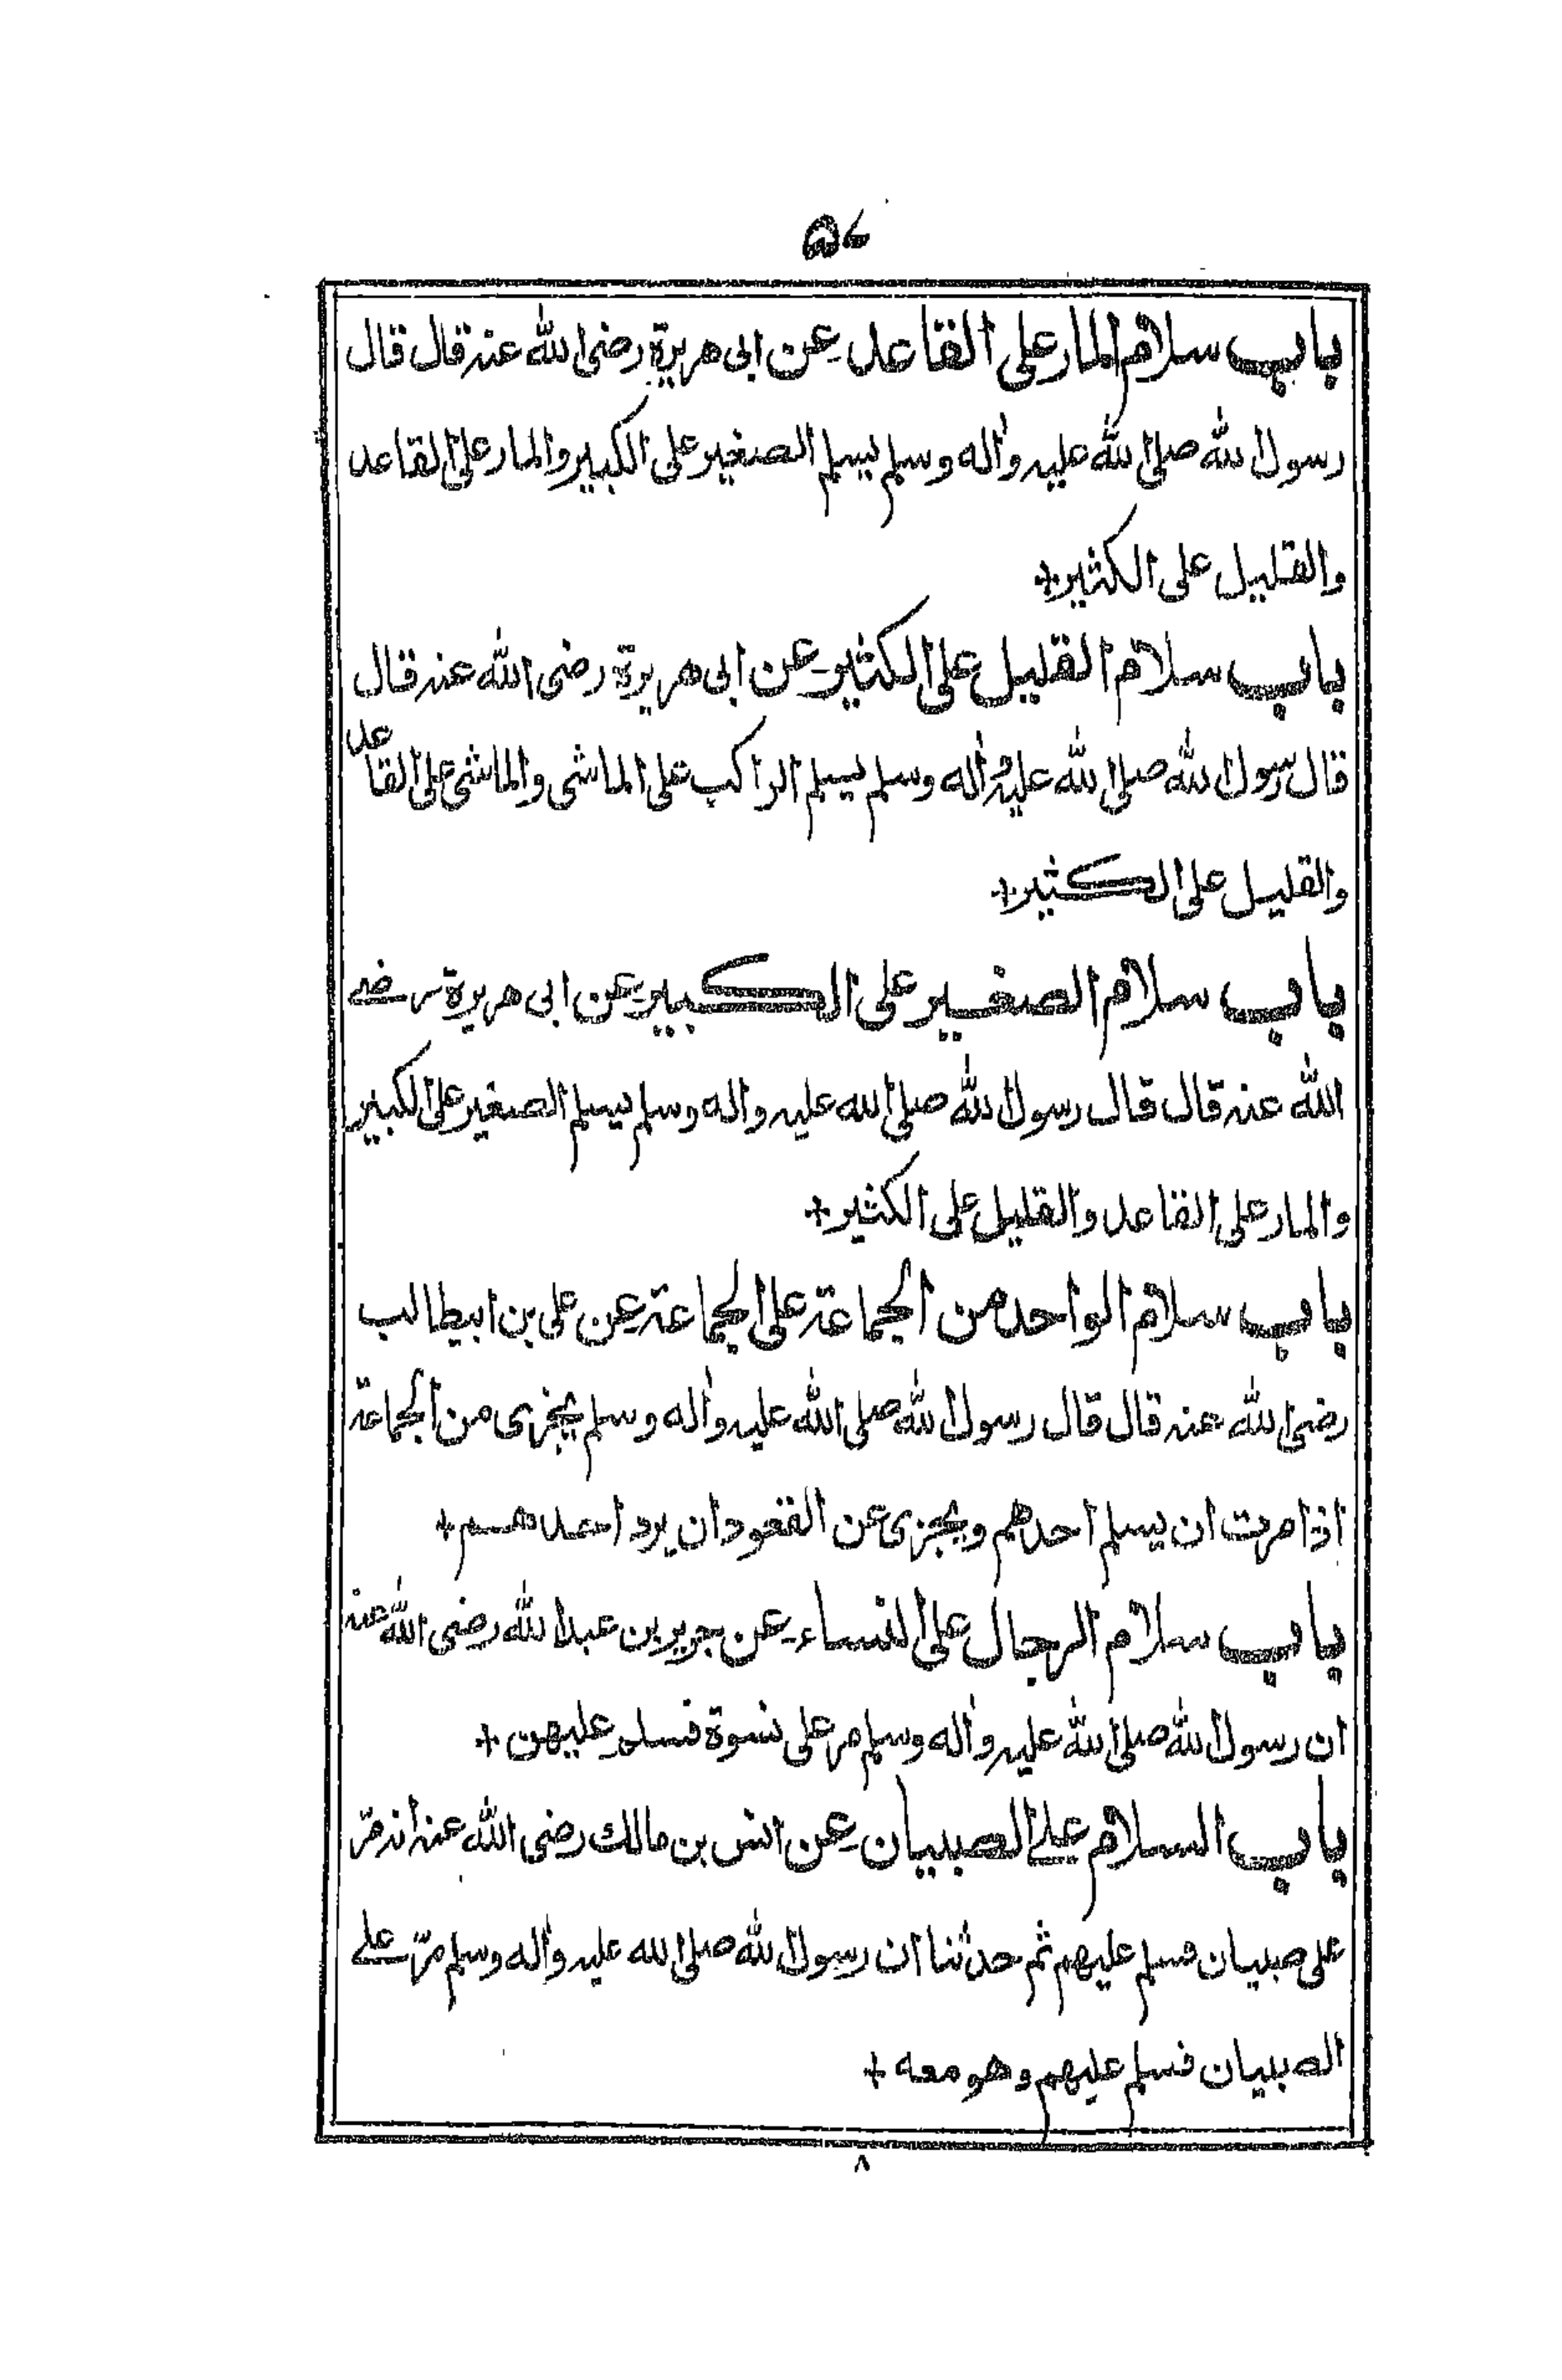 ۵۷
باب سلام المار على القاعد عن ابى هريرة رضى الله عنه قال قال
رسول الله صلى الله عليه واٰله وسلم يسلم الصغير على الكبير والمار على القاعد
والقليل على الكثير+
باب سلام القليل على الكثير عن ابى هريرة رضى الله عنه قال
قال رسول الله صلى الله عليه واٰله وسلم يسلم الراكب على الماشى والماشى على القاعد
والقليل على الكثير+
باب سلام الصغير على الكبير عن ابى هريرة رضے
الله عنه قال قال رسول الله صلى الله عليه واله وسلم يسلم الصغير على الكبير
والمار على القاعد والقليل على الكثير+
باب سلام الواحد من الجماعة على الجماعة عن على بن ابيطالب
رضى الله عنه قال قال رسول الله صلى الله عليه واٰله وسلم يجزى من الجماعة
اذا مرت ان يسلم احدهم ويجزى عن القعود ان يرد احدهم+
باب سلام الرجال على النساء عن جرير بن عبد الله رضى الله عنه
ان رسول الله صلى الله عليه واٰله وسلم مر على نسوة فسلم عليهن+
باب السلام علے الصبيان عن انس بن مالك رضى الله عنه انه مرّ
على صبيان فسلم عليهم ثم حدثنا ان رسول الله صلى الله عليه واٰله وسلم مرّ علے
الصبيان فسلم عليهم وهو معه+
٨